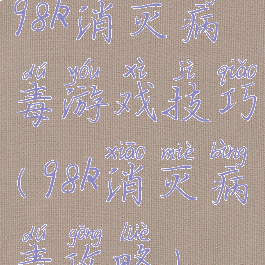 98k消灭病
dú yóu xì jì qiǎo
毒游戏技巧
xiāo miè bìng
(98k消灭病
dú gōng lüè
毒攻略)